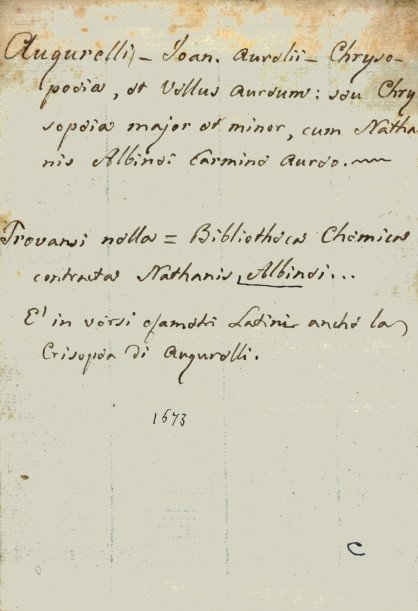 Augurelli - Joan. Aurelii - Chryso-
poeia, et Vellus Aureum: seu Chry
sopoeia major et minor, cum Natha
nis Albinei Carmine Aureo.
Trovansi nella = Bibliotheca Chemica
contracta Nathanis Albinei...
E' in versi esametri Latini anche la
Crisopea di Augurelli.
1673
C